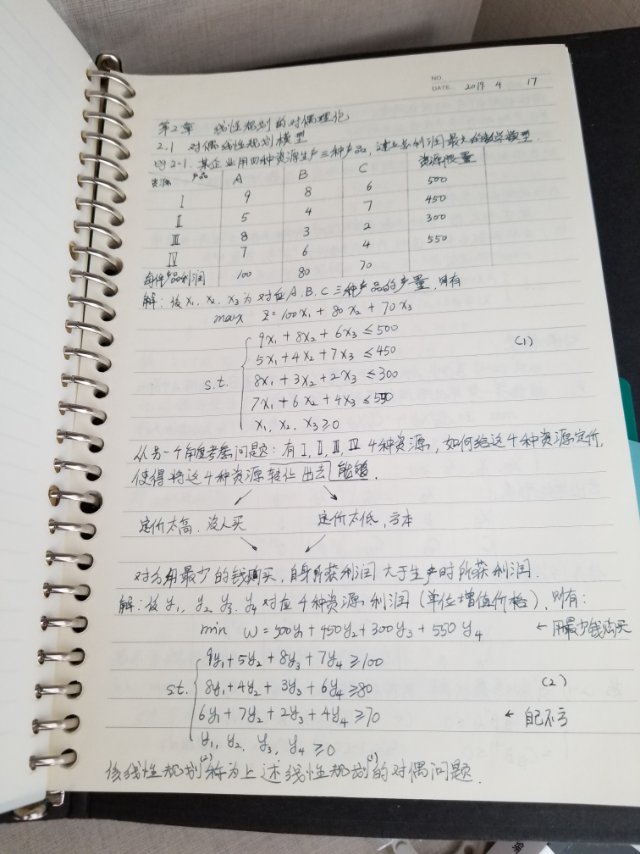 NO.
DATE 2019 4 17
第2章 线性规划的对偶理论
2.1 对偶线性规划模型
例2-1. 某企业用四种资源生产三种产品,建立总利润最大的数学模型.
资源 产品 A B C 资源限量
Ⅰ 9 8 6 500
Ⅱ 5 4 7 450
Ⅲ 8 3 2 300
Ⅳ 7 6 4 550
每件产品利润 100 80 70
解:设 x₁, x₂, x₃为对应A.B.C三种产品的产量,则有
max Z=100x₁+80x₂+70x₃
9x₁+8x₂+6x₃≤500 (1)
5x₁+4x₂+7x₃≤450
s.t. 8x₁+3x₂+2x₃≤300
7x₁+6x₂+4x₃≤550
x₁, x₂, x₃≥0
从另一个角度考虑问题:有Ⅰ,Ⅱ,Ⅲ,Ⅳ 4种资源,如何给这4种资源定价,
使得将这4种资源转让出去能赚.
定价太高,没人买 定价太低,亏本
对方用最少的钱购买,自身所获利润大于生产时所获利润.
解:设 y₁, y₂ y₃. y₄对应4种资源利润(单位增值价格),则有:
min w=500y₁+450y₂+300y₃+550y₄ ←用最少钱购买
9y₁+5y₂+8y₃+7y₄≥100
s.t. 8y₁+4y₂+3y₃+6y₄≥80 (2)
6y₁+7y₂+2y₃+4y₄≥70 ← 自己不亏
y₁, y₂, y₃, y₄≥0
该线性规划(2)称为上述线性规划(1)的对偶问题.